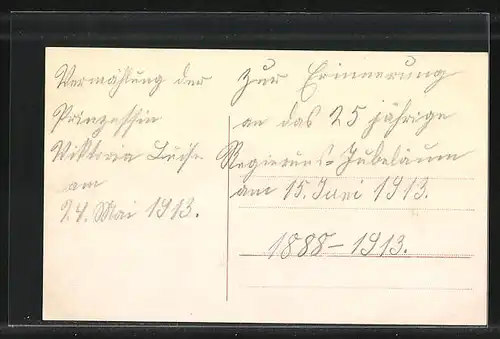 Vermählung der
Prinzessin
Viktoria Luise
am
24. Mai 1913.
Zur Erinnerung
an das 25 jährige
Regieruns-Jubeläum
am 15. Juni 1913.
1888-1913.